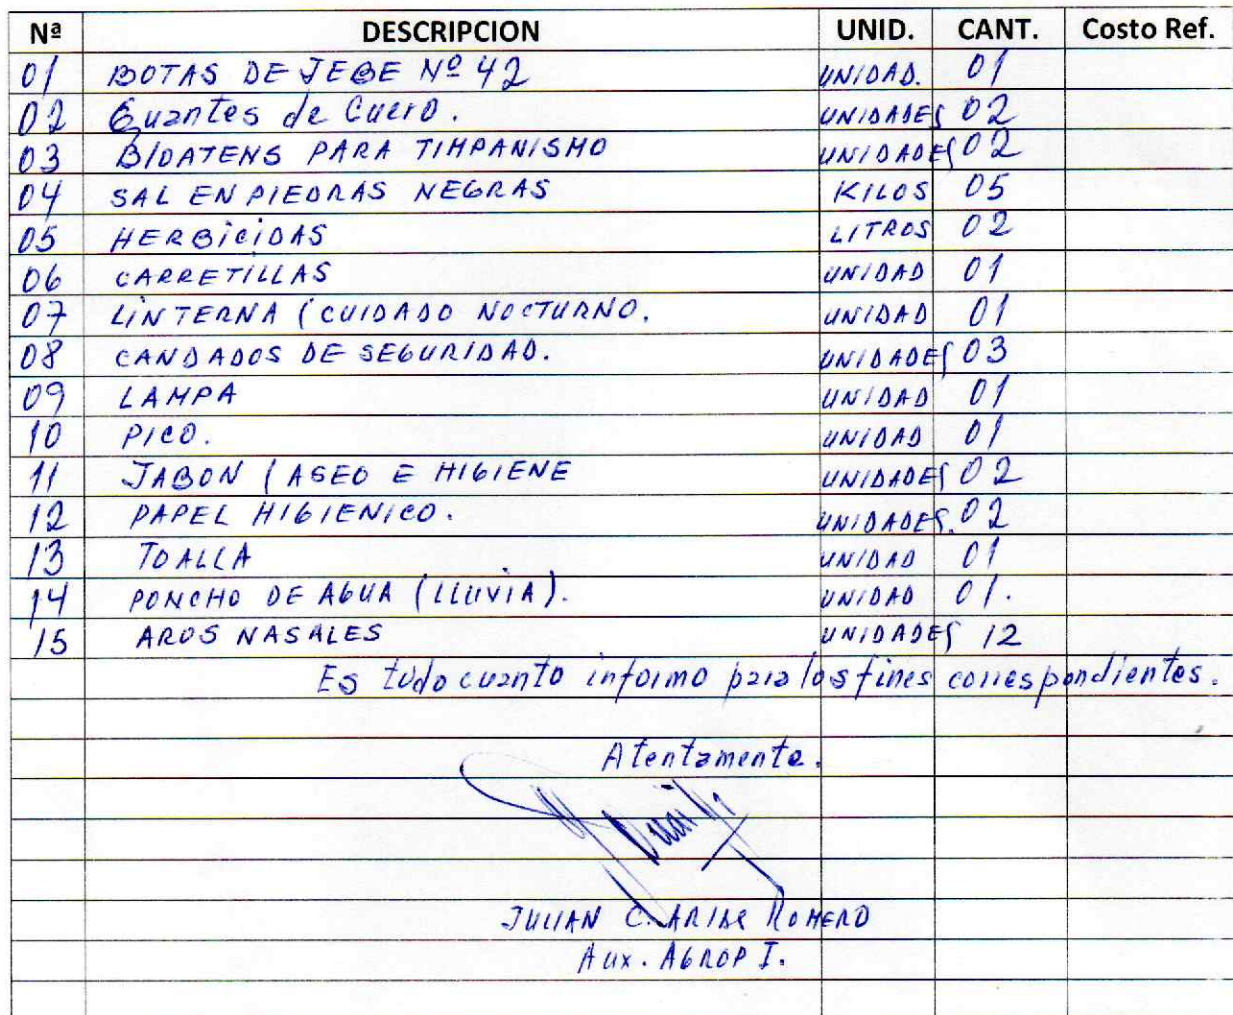 Nª DESCRIPCION UNID. CANT. Costo Ref.
01 BOTAS DE JEBE Nº 42 UNIDAD. 01
02 Guantes de Cuero. UNIDADES 02
03 BIOATENS PARA TIMPANISMO UNIDADES 02
04 SAL EN PIEDRAS NEGRAS KILOS 05
05 HERBICIDAS LITROS 02
06 CARRETILLAS UNIDAD 01
07 LINTERNA (CUIDADO NOCTURNO. UNIDAD 01
08 CANDADOS DE SEGURIDAD. UNIDADES 03
09 LAMPA UNIDAD 01
10 PICO. UNIDAD 01
11 JABON (ASEO E HIGIENE UNIDADES 02
12 PAPEL HIGIENICO. UNIDADES. 02
13 TOALLA UNIDAD 01
14 PONCHO DE AGUA (LLUVIA). UNIDAD 01.
15 AROS NASALES UNIDADES 12
Es todo cuanto informo para los fines correspondientes.
Atentamente.
JULIAN C. ROMERO
Aux. AGROP I.